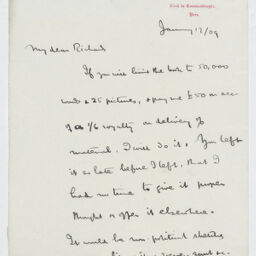 Club de Constantinople,
Pera
January 17/09
My dear Richards
If you will limit the book to 50,000
words & 25 pictures, & pay me £50 on acc
of a 1/6 royalty on delivery of
material, I will do it. You left
it so late before I left, that I
had no time to give it proper
thought or offer it elsewhere.
It would be non-political sketches